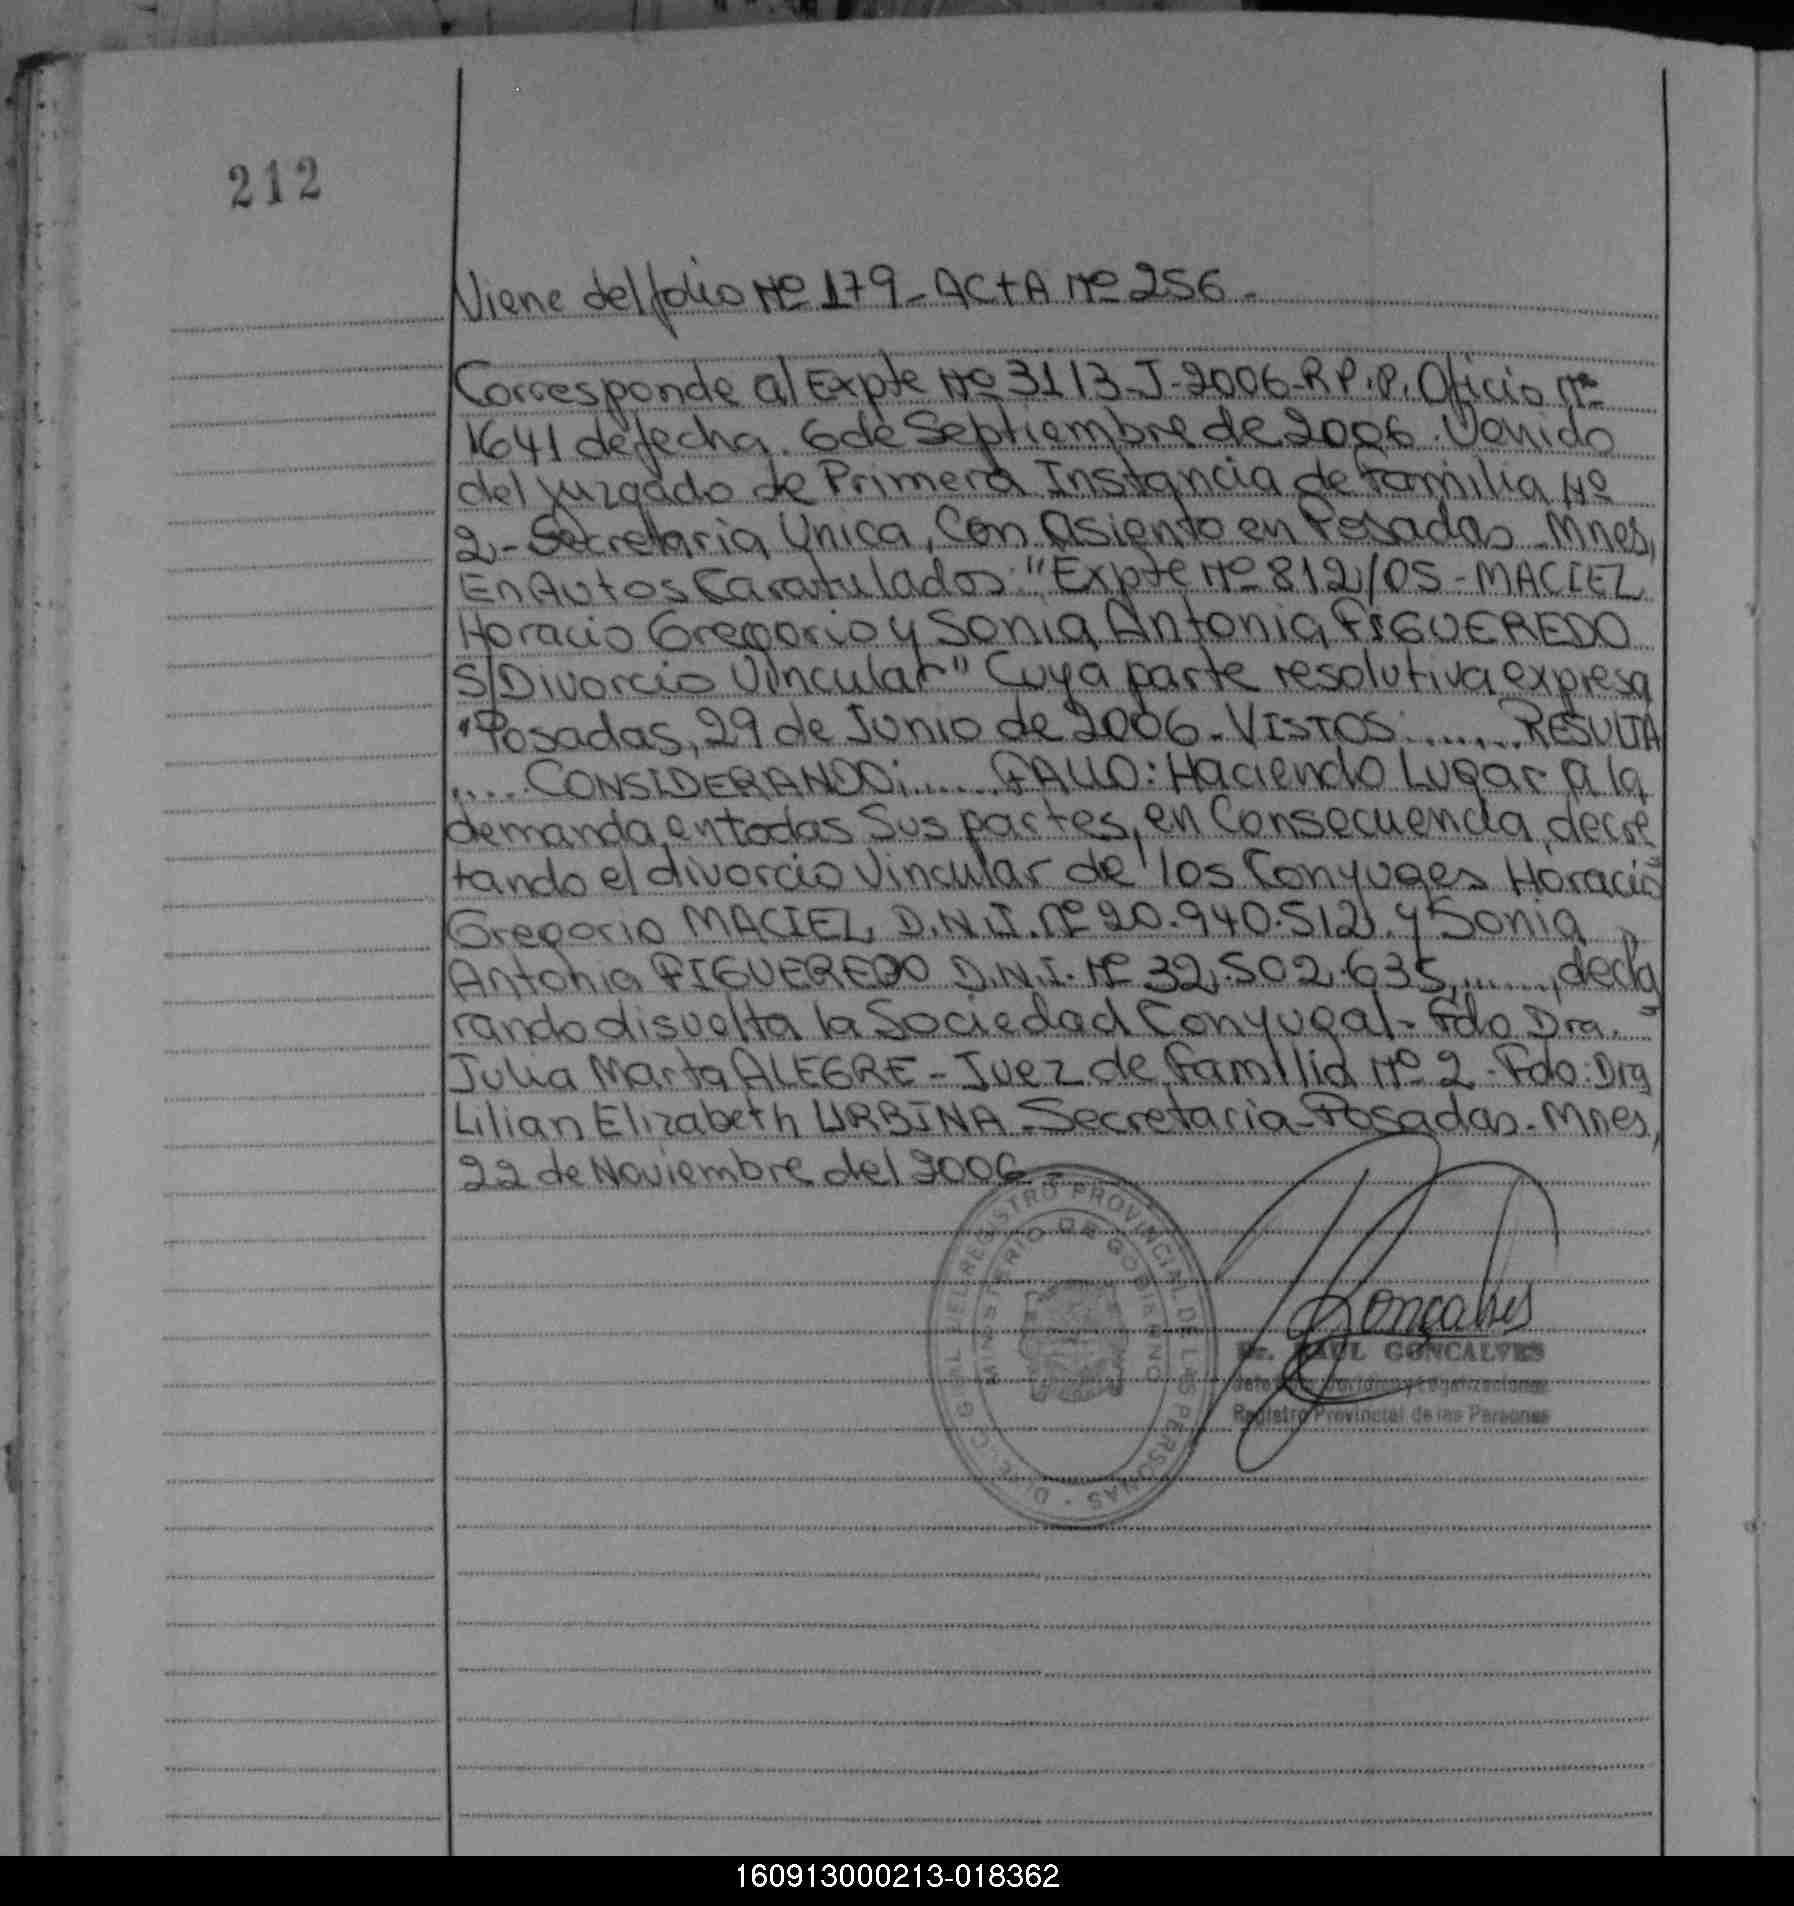 212
Viene del folio Nº 179 - ACTA Nº 256 -
Corresponde al Expte Nº 3113-J-2006-R.P.P. Oficio Nº
1641 de fecha 6 de Septiembre de 2006. Venido
del Juzgado de Primera Instancia de Familia Nº
2 - Secretaria Unica, Con Asiento en Posadas - Mnes,
En Autos Caratulados: "Expte Nº 812/05 - MACIEL
Horacio Gregorio y Sonia Antonia FIGUEREDO
S/Divorcio Vincular" Cuya parte resolutiva expresa
"Posadas, 29 de Junio de 2006. VISTOS: ....... RESULTA
..... CONSIDERANDO: ...... FALLO: Haciendo Lugar a la
demanda en todas Sus partes, en Consecuencia, decre
tando el divorcio Vincular de los Conyuges Horacio
Gregorio MACIEL, D.N.I. Nº 20.940.512 y Sonia
Antonia FIGUEREDO D.N.I. Nº 32.502.635, ......, decla
rando disuelta la Sociedad Conyugal - Fdo Dra.
Julia Marta ALEGRE - Juez de Familia Nº 2 - Fdo. Dra
Lilian Elizabeth URBINA - Secretaria - Posadas - Mnes,
22 de Noviembre del 2006 -
REGISTRO PROVINCIAL DE LAS PERSONAS
MINISTERIO DE GOBIERNO
Goncalves
Dr. RAUL GONCALVES
Jurídico y Legalizaciones
Registro Provincial de las Personas
160913000213-018362